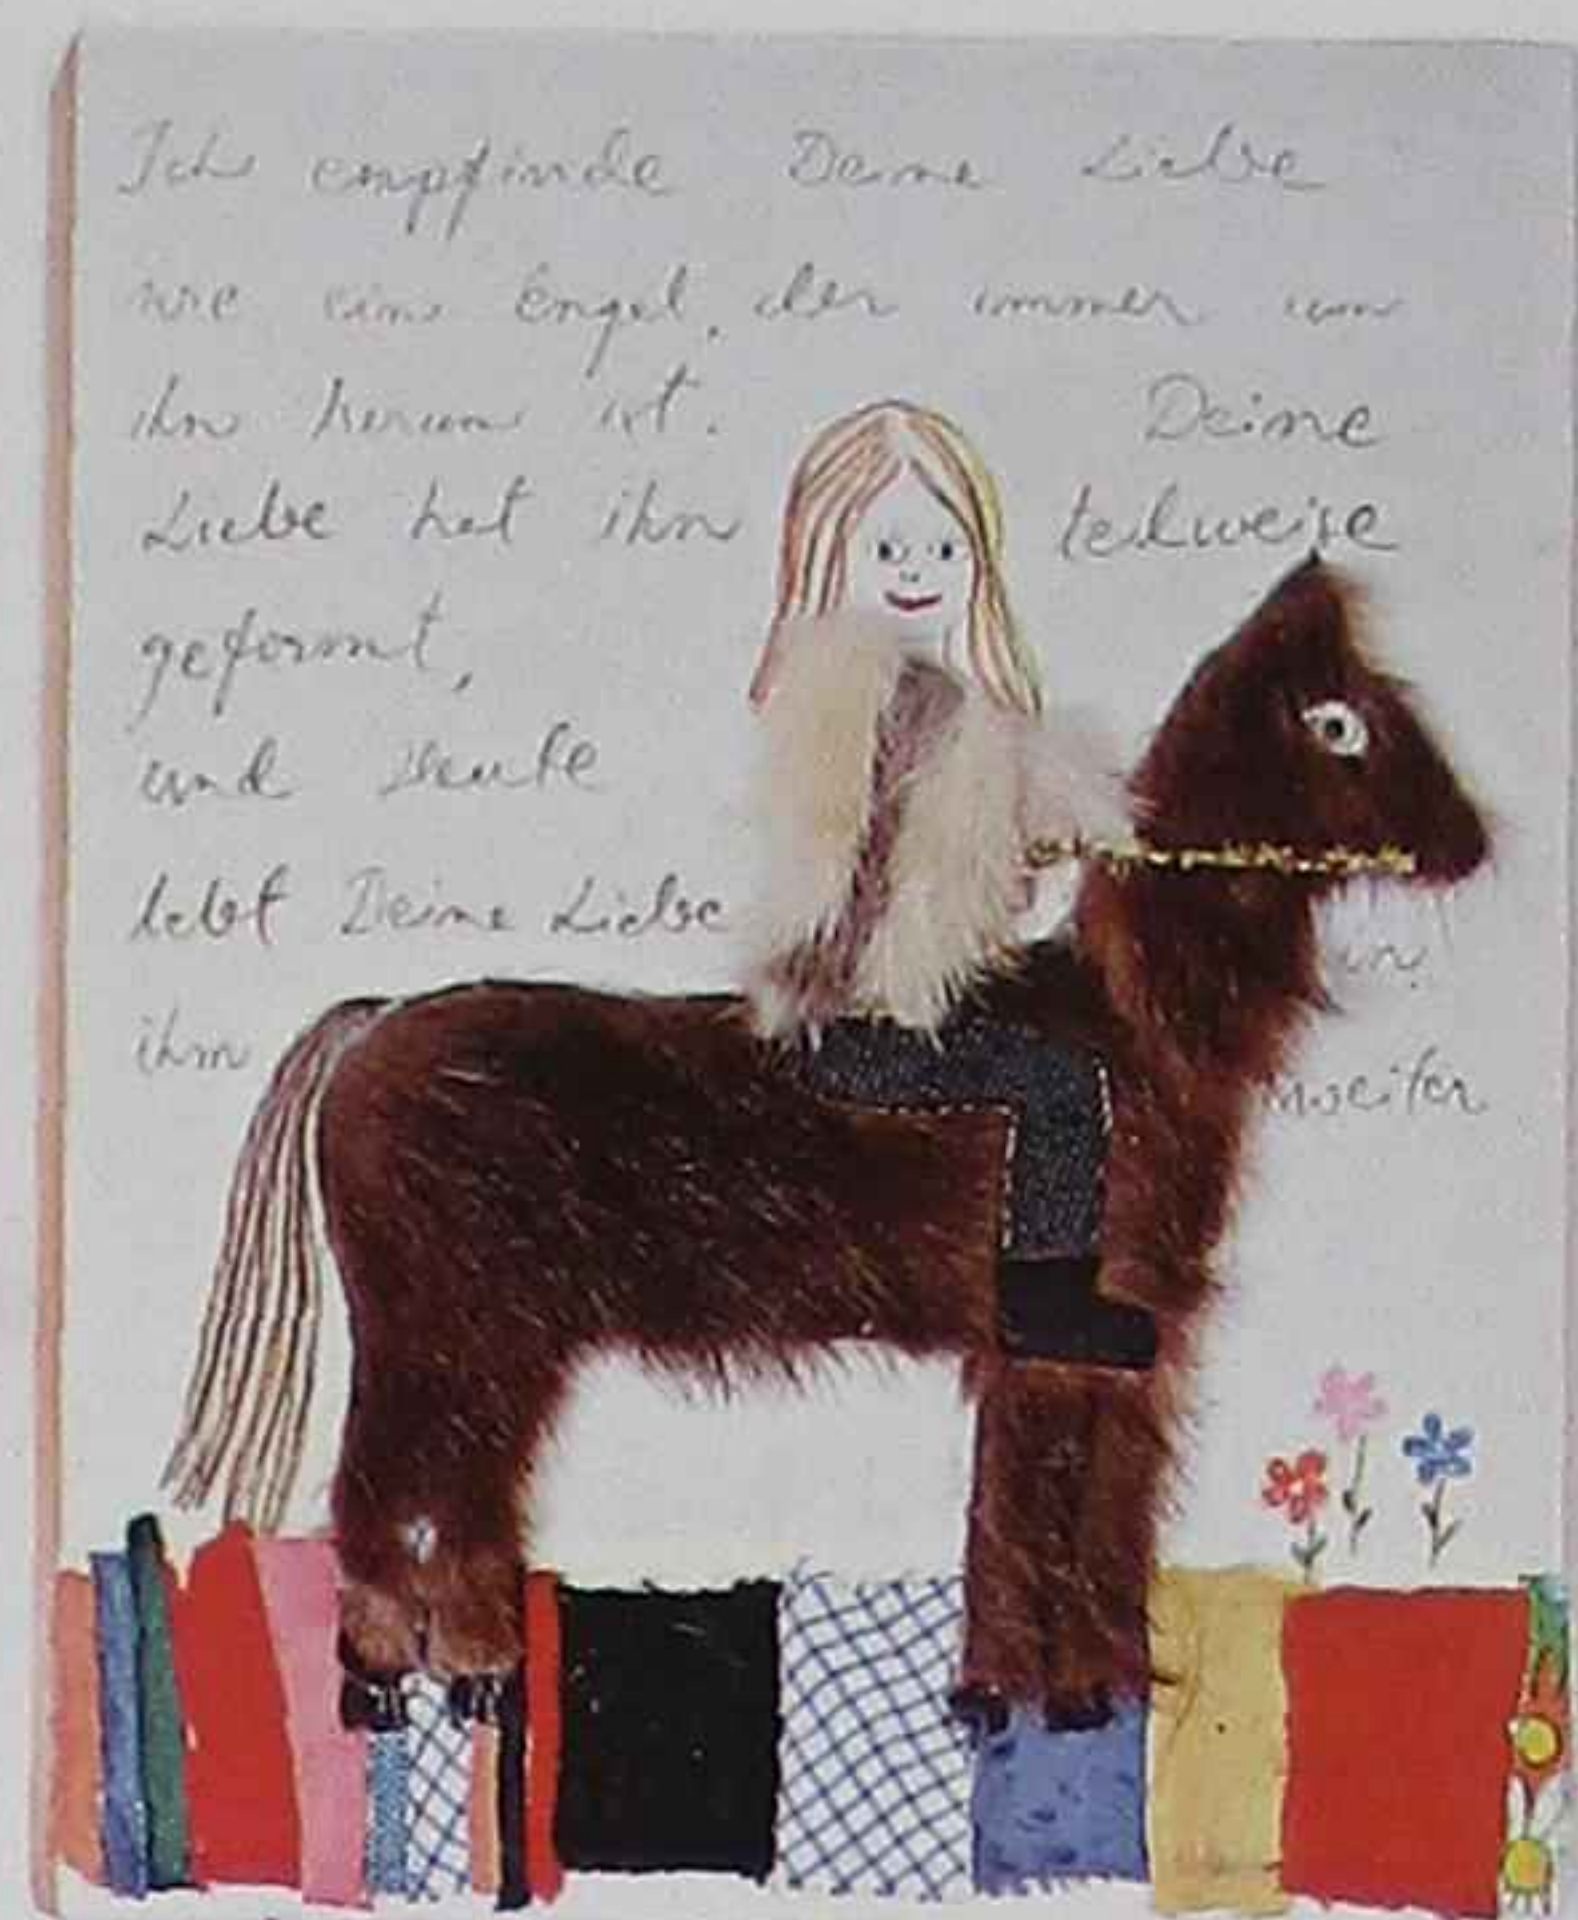 Ich empfinde Deine Liebe
wie ein Engel, der immer um
ihn herum ist. Deine
Liebe hat ihn teilweise
geformt,
und heute
lebt Deine Liebe in
ihm weiter